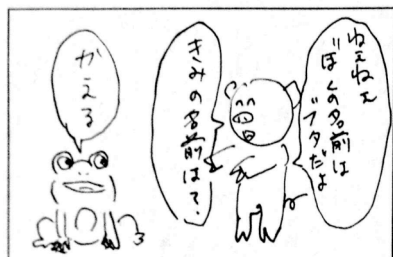 ねぇねぇ
ぼくの名前は
ブタだよ
きみの名前はて・
かえる